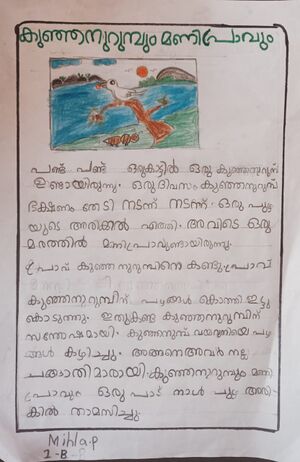 കുഞ്ഞനുറുമ്പും മണിപ്രാവും
പണ്ട് പണ്ട് ഒരുകാട്ടിൽ ഒരു കുഞ്ഞനുറുമ്പ്
ഉണ്ടായിരുന്നു. ഒരുദിവസം കുഞ്ഞനുറുമ്പ്
ഭക്ഷണം തേടി നടന്ന് നടന്ന് ഒരു പുഴ
യുടെ അരികിൽ എത്തി. അവിടെ ഒരു
മരത്തിൽ മണിപ്രാവുണ്ടായിരുന്നു.
പ്രാവ് കുഞ്ഞനുറുമ്പിനെ കണ്ടു. പ്രാവ്
കുഞ്ഞനുറുമ്പിന് പഴങ്ങൾ കൊത്തി ഇട്ടു
കൊടുന്നു. ഇതുകണ്ട കുഞ്ഞനുറുമ്പിന്
സന്തോഷമായി. കുഞ്ഞനുറുമ്പ് വയറുനിറയെ പഴ
ങ്ങൾ കഴിച്ചു. അങ്ങനെഅവർ നല്ല
ചങ്ങാതിമാരായി. കുഞ്ഞനുറുമ്പും മണി
പ്രാവും ഒരു പാട് നാൾ പുഴ അരി
കിൽ താമസിച്ചു.
Mihla.P
1-B